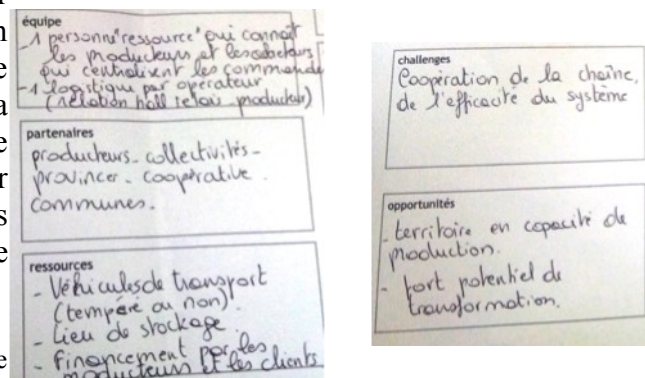 équipe
- 1 personne "ressource" qui connait
les producteurs et les
qui centralisent les commande
- 1 logistique par opérateur
(relation hall relais - producteur)
partenaires
producteurs - collectivités -
provinces - coopérative.
communes.
ressources
- Véhicules de transport
(tempéré ou non)
- Lieu de stockage.
- Financement par les
producteurs et les clients
challenges
Coopération de la chaîne,
de l'efficacité du système
opportunités
- territoire en capacité de
production.
- fort potentiel de
transformation.